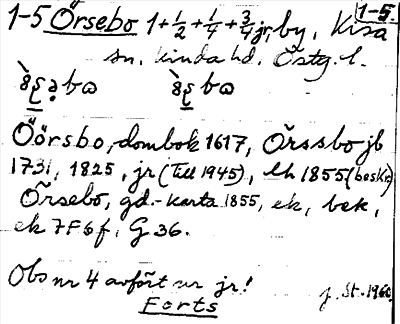 1-5 Örsebo 1+½+¼+¾ jr, by, Kisa 1-5.
sn. Kinda hd. Östg. l.
Öörsbo, dombok 1617, Örssbo jb
1731, 1825, jr (till 1945), lh 1855 (beskr)
Örsebo, gd.-karta 1855, ek, bek,
ek 7F6f, G 36.
Obs nr 4 avfört ur jr!
Forts